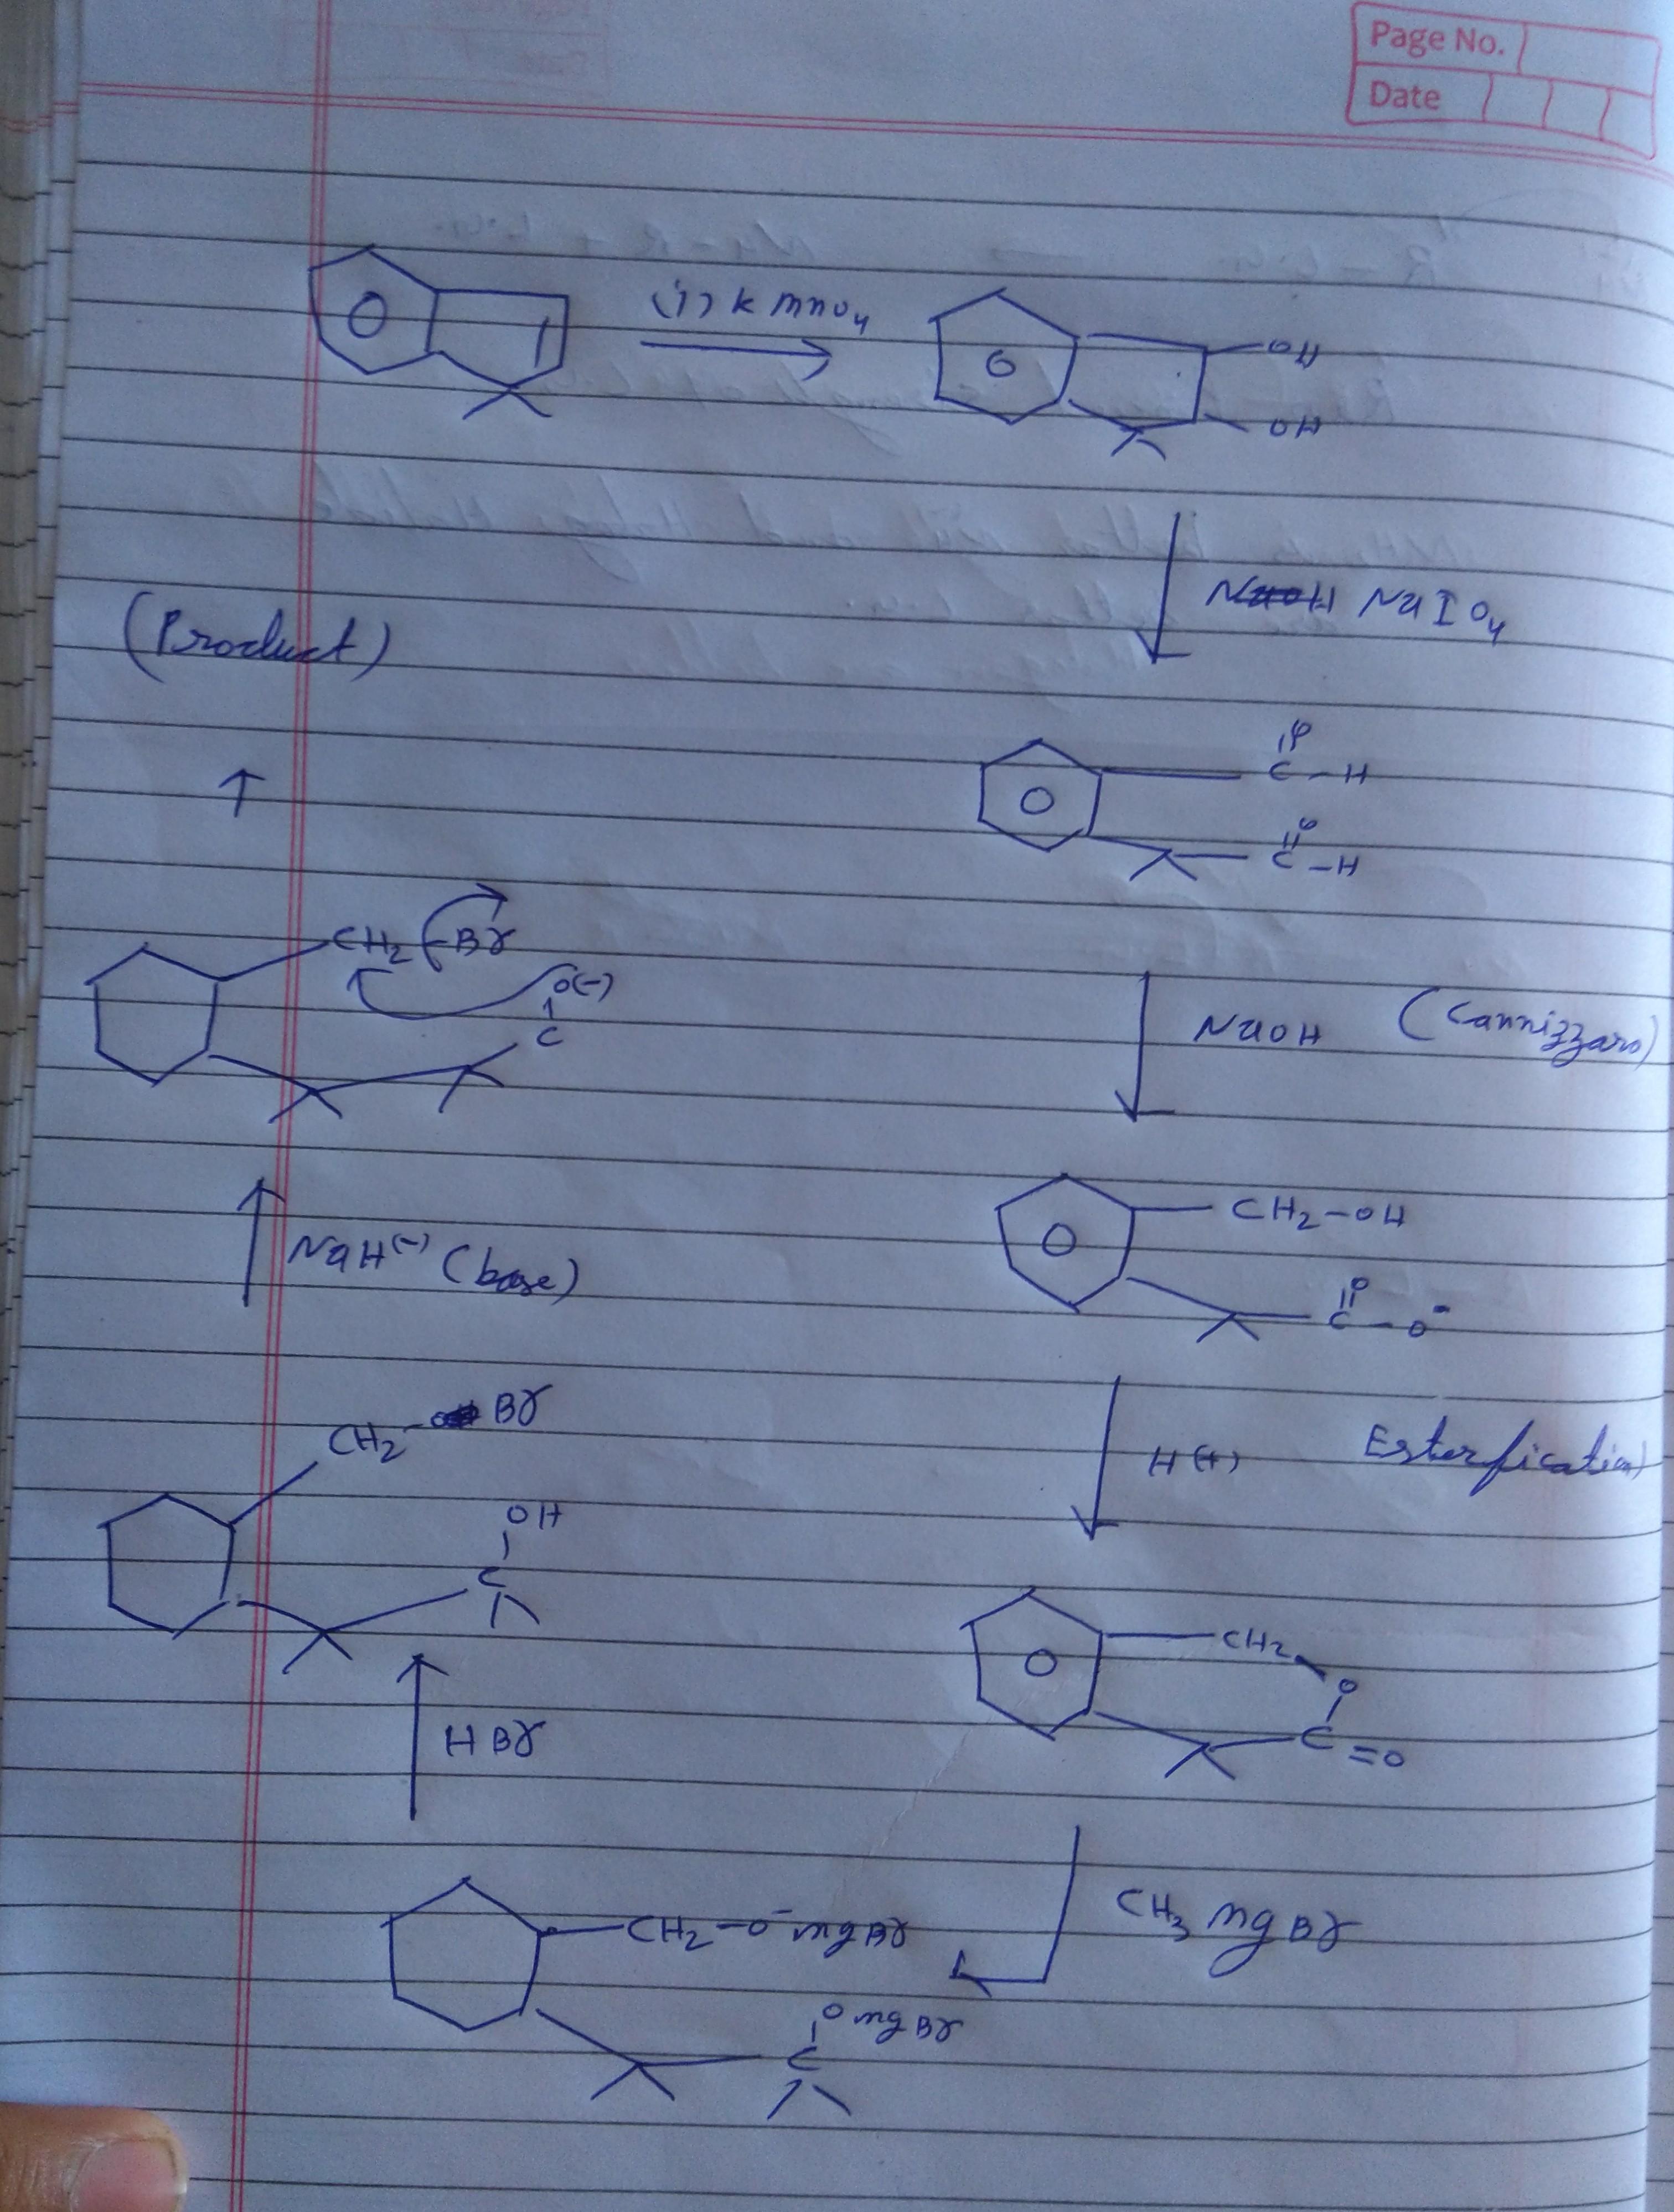 Page No.
Date
(i) KMnO4
OH
OH
NaIO4
(Product)
O
C-H
O
C-H
CH2-Br
O(-)
C
NaOH (Cannizzaro)
NaH(-) (base)
CH2-OH
O
C-O-
CH2-Br
OH
C
H(+) Esterfication)
CH2
O
C=O
HBr
CH3MgBr
CH2-O-MgBr
OMgBr
C